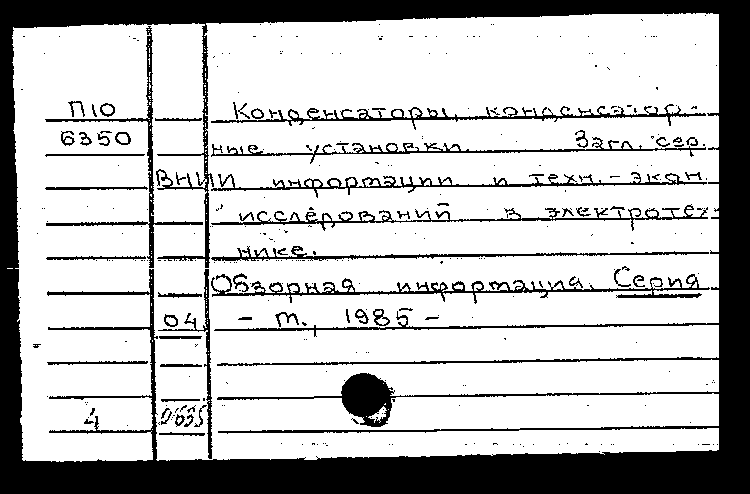 П10 Конденсаторы, конденсатор-
6350 ные установки. Загл. сер.
ВНИИ информации и техн.-экон.
исследований в электротех-
нике.
Обзорная информация. Серия
04. - М., 1985 -
4